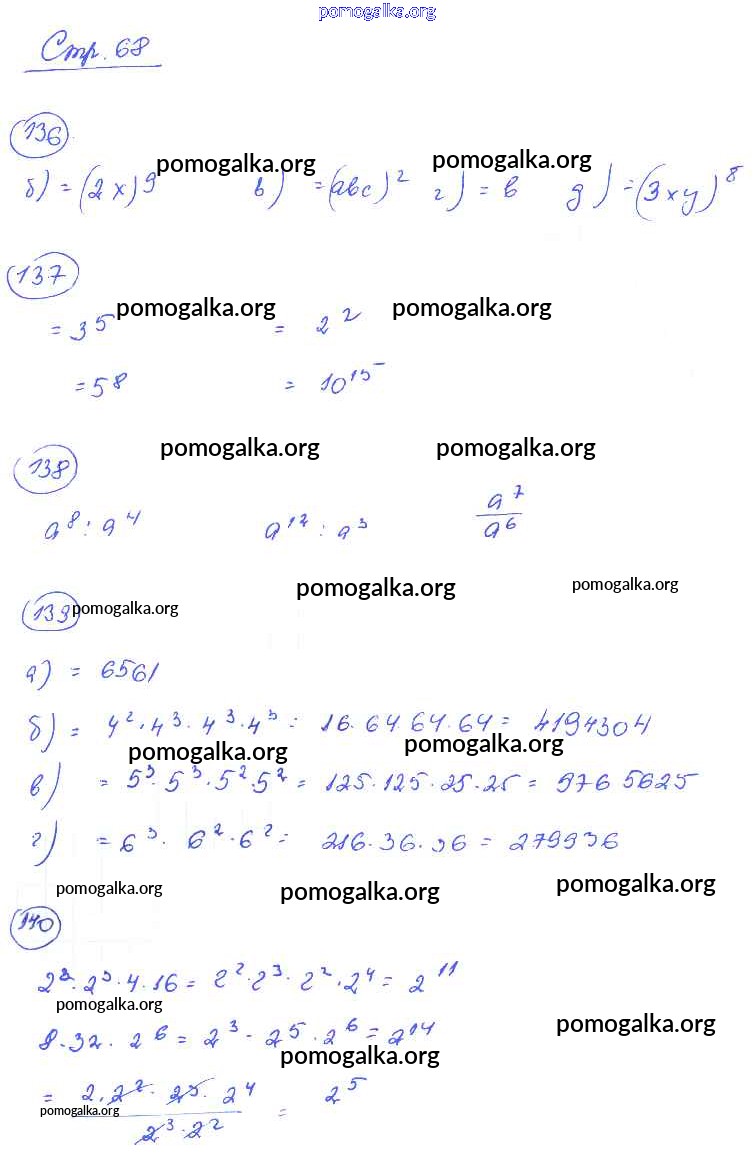 pomogalka.org
Стр. 68
136
pomogalka.org pomogalka.org
б) = (2x)⁹ в) = (abc)² г) = в д) = (3xy)⁸
137
pomogalka.org pomogalka.org
= 3⁵ = 2²
= 5⁸ = 10¹⁵
pomogalka.org pomogalka.org
138
a⁸ : a⁴ a¹² : a³ a⁷/a⁶
pomogalka.org pomogalka.org
139 pomogalka.org
а) = 6561
б) = 4²·4³·4³·4³ = 16·64·64·64 = 4194304
pomogalka.org pomogalka.org
в) = 5³·5³·5²·5² = 125·125·25·25 = 9765625
г) = 6³·6²·6² = 216·36·36 = 279936
pomogalka.org pomogalka.org pomogalka.org
140
2²·2³·4·16 = 2²·2³·2²·2⁴ = 2¹¹
pomogalka.org
8·32·2⁶ = 2³·2⁵·2⁶ = 2¹⁴
pomogalka.org pomogalka.org
= 2·2²·2³·2⁴ / 2³·2² = 2⁵
pomogalka.org